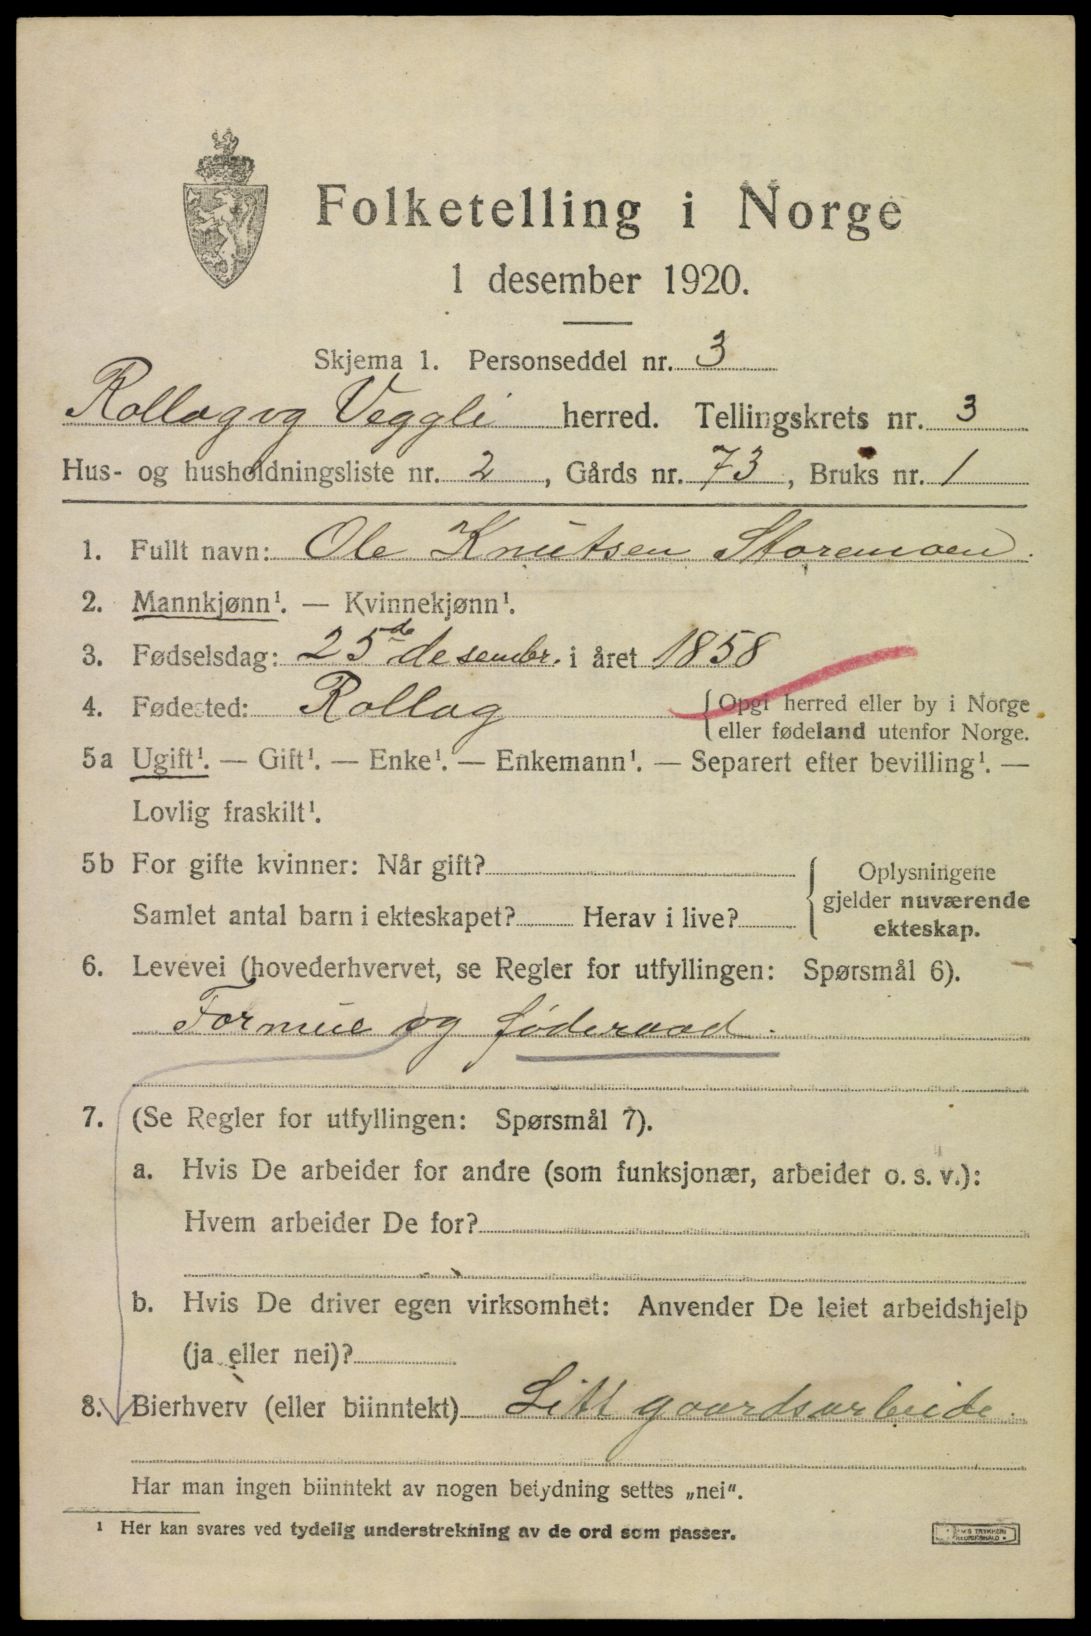 Folketelling i Norge
1 desember 1920.
Skjema 1. Personseddel nr. 3
Rollag og Veggli herred. Tellingskrets nr. 3
Hus- og husholdningsliste nr. 2, Gårds nr. 73, Bruks nr. 1
1. Fullt navn: Ole Knutsen Storemoen.
2. Mannkjønn¹. — Kvinnekjønn¹.
3. Fødselsdag: 25de desembr. i året 1858
4. Fødested: Rollag {Opgi herred eller by i Norge
eller fødeland utenfor Norge.
5a Ugift¹. — Gift¹. — Enke¹. — Enkemann¹. — Separert efter bevilling¹. —
Lovlig fraskilt¹.
5b For gifte kvinner: Når gift? { Oplysningene
Samlet antal barn i ekteskapet? Herav i live? gjelder nuværende
ekteskap.
6. Levevei (hovederhvervet, se Regler for utfyllingen: Spørsmål 6).
Formue og føderaad.
7. (Se Regler for utfyllingen: Spørsmål 7).
a. Hvis De arbeider for andre (som funksjonær, arbeider o. s. v.):
Hvem arbeider De for?
b. Hvis De driver egen virksomhet: Anvender De leiet arbeidshjelp
(ja eller nei)?
8. Bierhverv (eller biinntekt) Litt gaardsarbeide.
Har man ingen biinntekt av nogen betydning settes „nei".
¹ Her kan svares ved tydelig understrekning av de ord som passer.